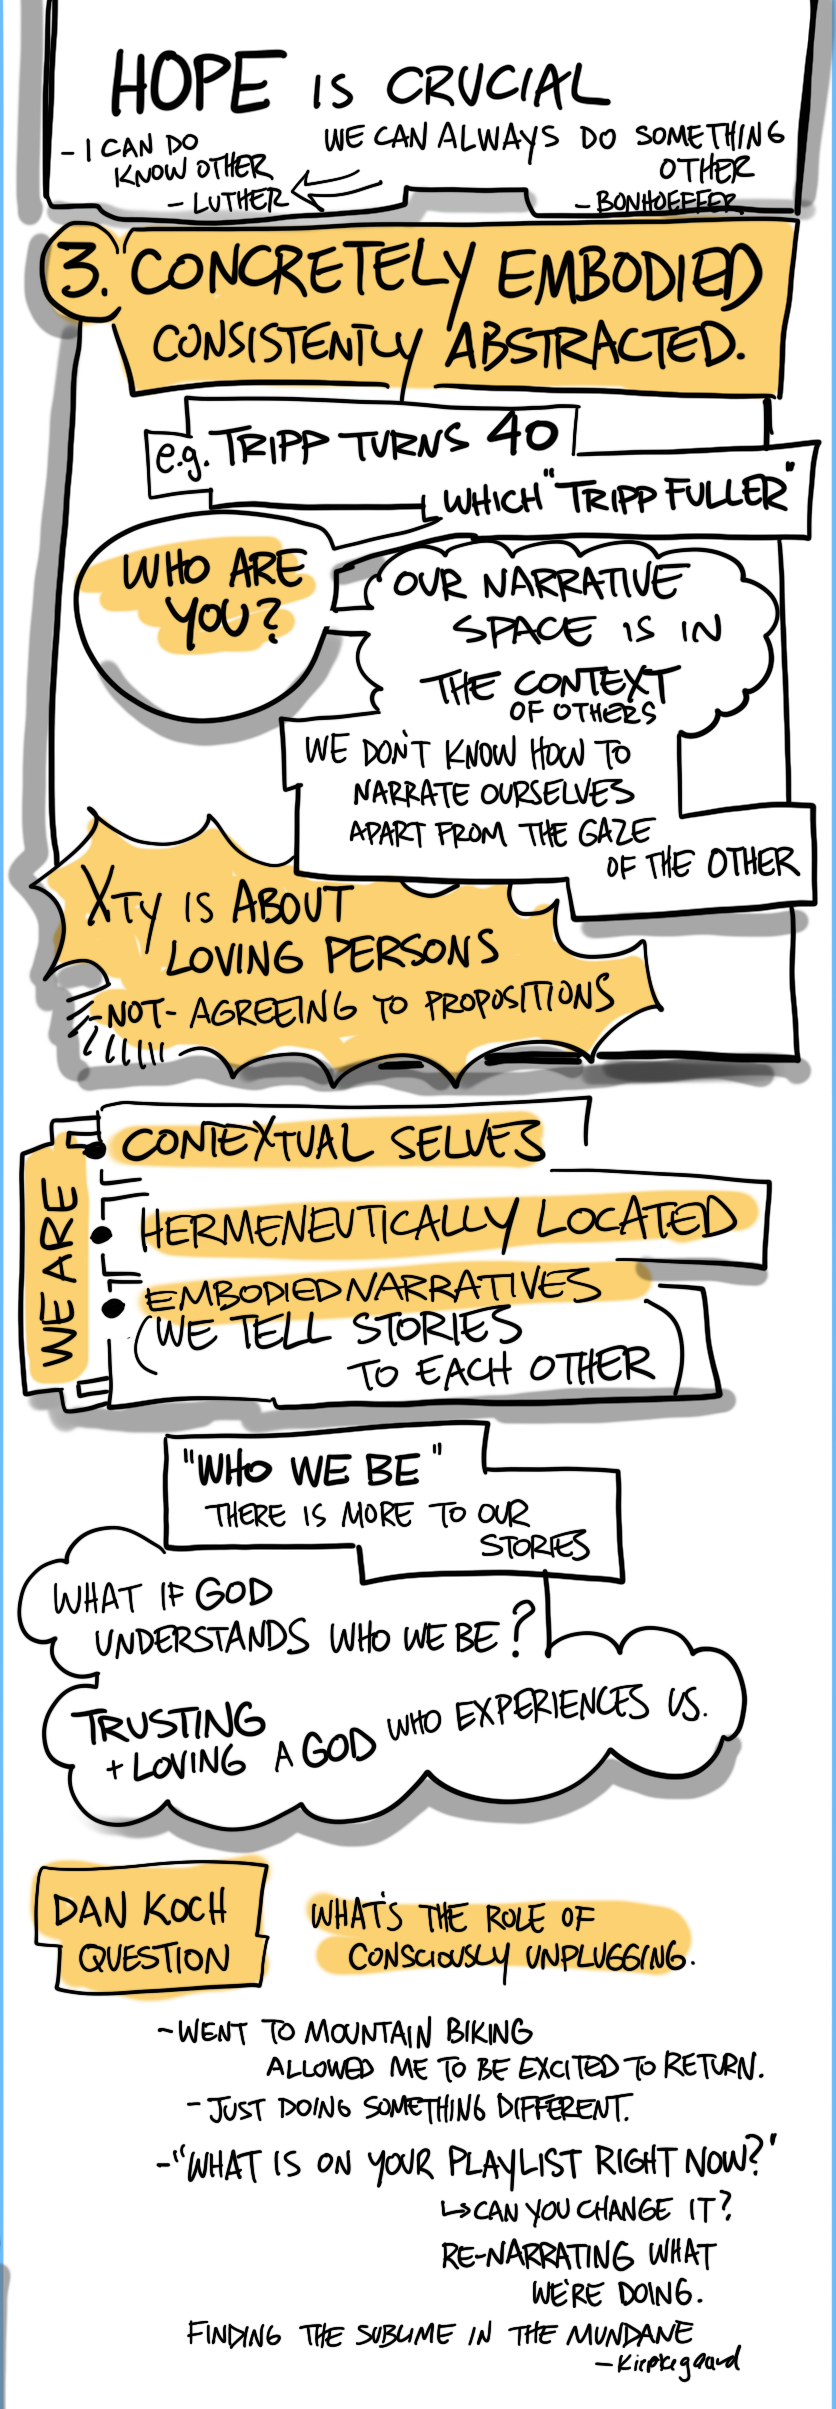 HOPE IS CRUCIAL
- I CAN DO
KNOW OTHER
- LUTHER
WE CAN ALWAYS DO SOMETHING
OTHER
- BONHOEFFER
3. CONCRETELY EMBODIED
CONSISTENTLY ABSTRACTED.
e.g. TRIPP TURNS 40
WHICH "TRIPP FULLER"
WHO ARE
YOU?
OUR NARRATIVE
SPACE IS IN
THE CONTEXT
OF OTHERS
WE DON'T KNOW HOW TO
NARRATE OURSELVES
APART FROM THE GAZE
OF THE OTHER
XTY IS ABOUT
LOVING PERSONS
-NOT- AGREEING TO PROPOSITIONS
WE ARE
• CONTEXTUAL SELVES
• HERMENEUTICALLY LOCATED
• EMBODIED NARRATIVES
(WE TELL STORIES
TO EACH OTHER)
"WHO WE BE"
THERE IS MORE TO OUR
STORIES
WHAT IF GOD
UNDERSTANDS WHO WE BE?
TRUSTING
+ LOVING A GOD WHO EXPERIENCES US.
DAN KOCH
QUESTION
WHAT'S THE ROLE OF
CONSCIOUSLY UNPLUGGING.
- WENT TO MOUNTAIN BIKING
ALLOWED ME TO BE EXCITED TO RETURN.
- JUST DOING SOMETHING DIFFERENT.
- "WHAT IS ON YOUR PLAYLIST RIGHT NOW?"
↳ CAN YOU CHANGE IT?
RE-NARRATING WHAT
WE'RE DOING.
FINDING THE SUBLIME IN THE MUNDANE
- Kierkegaard